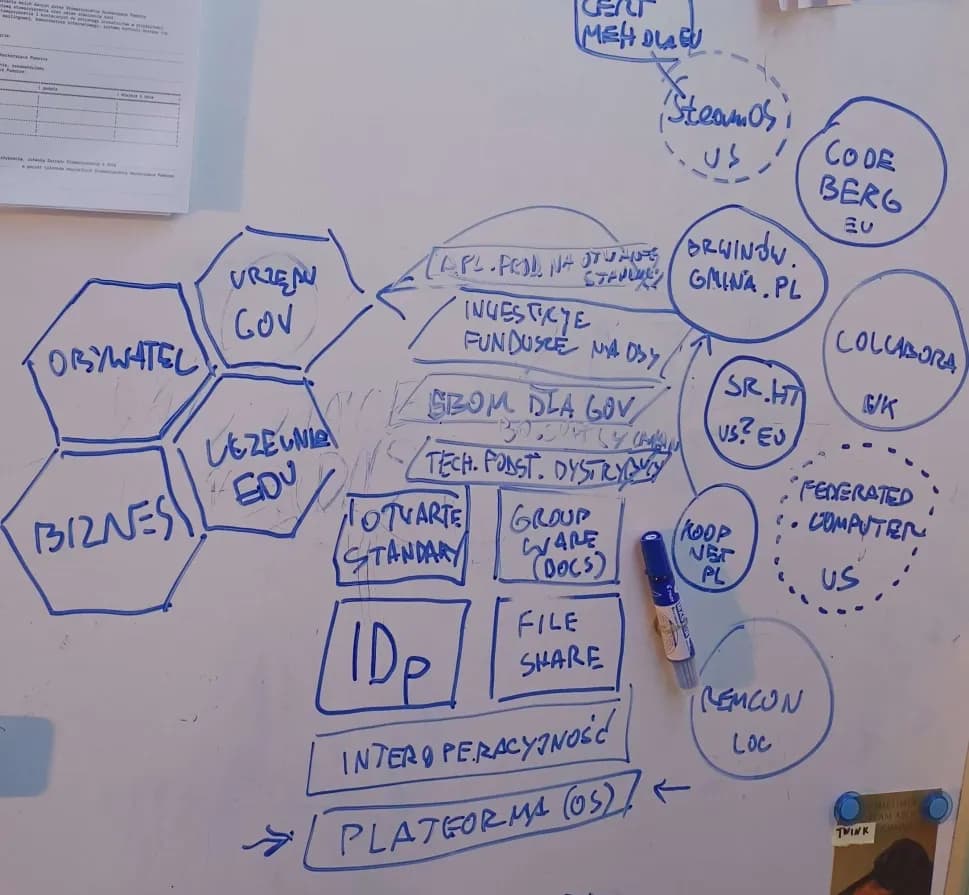 CERT
MEH DLA EU
SteamOS
US
CODE
BERG
EU
URZĘDY
GOV
OBYWATEL
BIZNES
UCZELNIE
EDU
APL. PROD. NA OTWARTE
STANDARDY
INWESTYCJE
FUNDUSZE NA OSY
SBOM DLA GOV
TECH. PODST. DYSTRYBUCJI
BRWINÓW.
GMINA.PL
COLLABORA
UK
SR.HT
US? EU
FEDERATED
COMPUTER
US
KOOP
NET
PL
REMCON
LOC
OTWARTE
STANDARY
GROUP
WARE
(DOCS)
IDP
FILE
SHARE
INTEROPERACYJNOŚĆ
PLATFORMA (OS)
TWINK